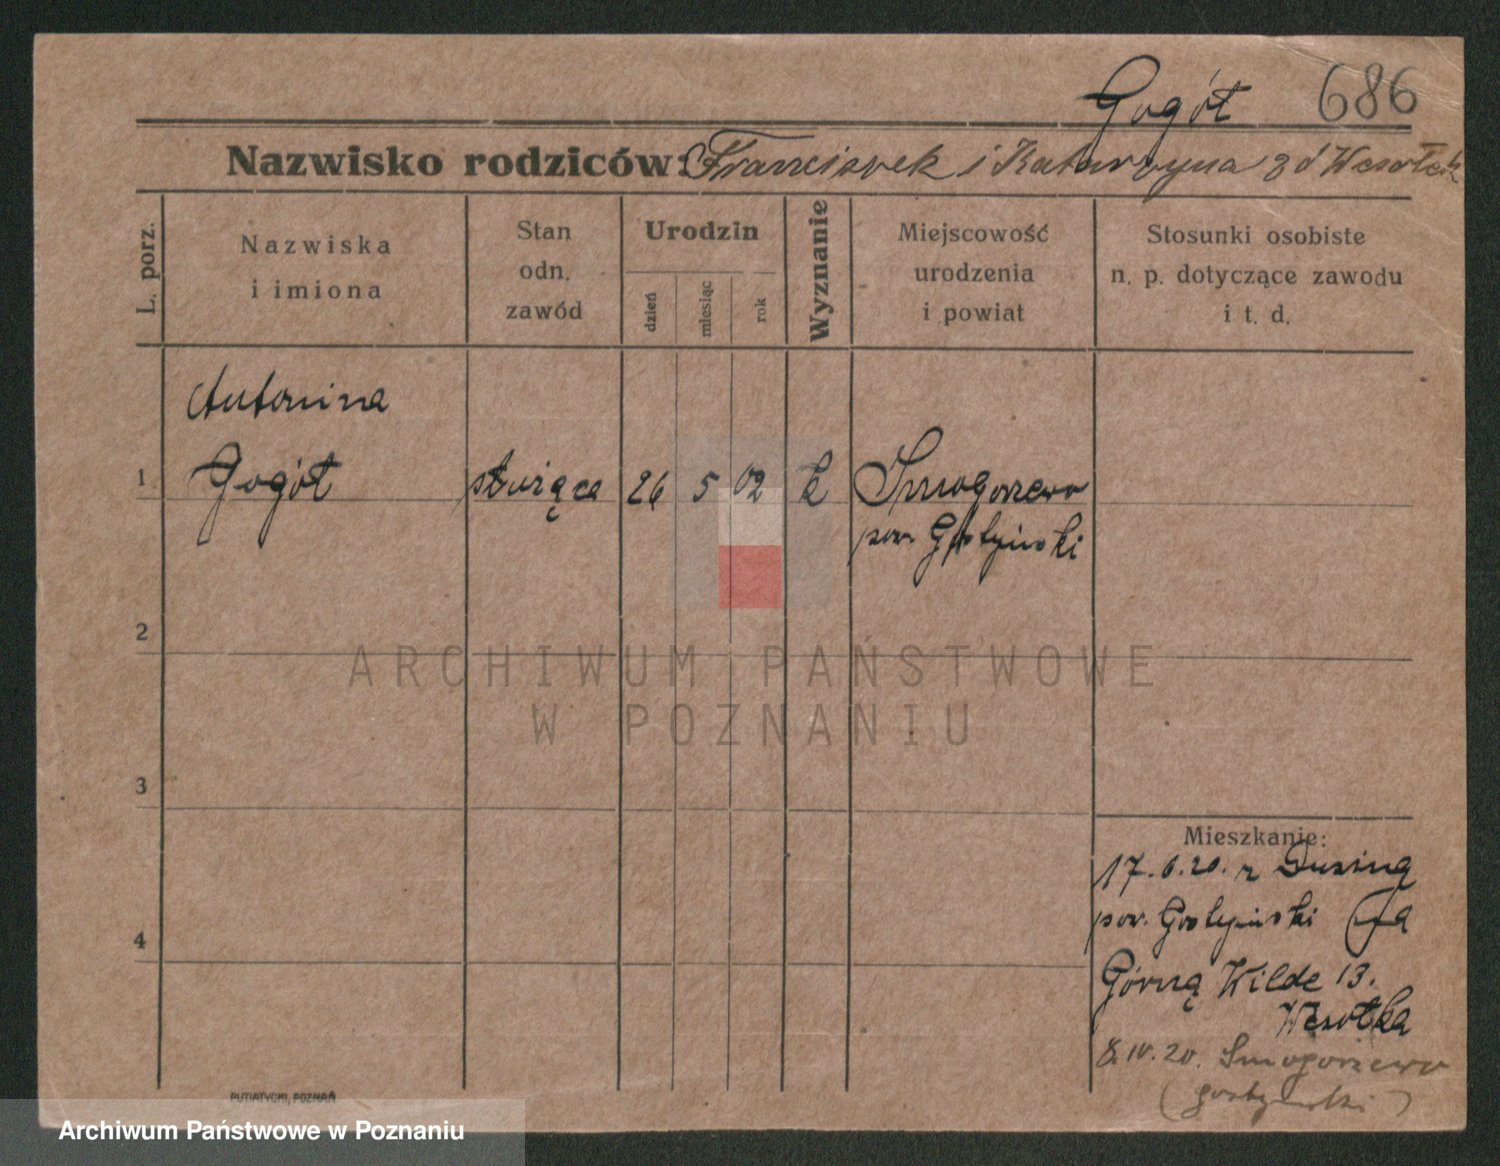 Gogół 686
Nazwisko rodziców: Franciszek i Katarzyna z d Wesołek
L. porz.
Nazwiska
i imiona
Stan
odn.
zawód
Urodzin
dzień
miesiąc
rok
Wyznanie
Miejscowość
urodzenia
i powiat
Stosunki osobiste
n. p. dotyczące zawodu
i t. d.
Antonina
1 Gogół służąca 26 5 02 k Smogorzewo
pow Gostyński
2
ARCHIWUM PAŃSTWOWE
W POZNANIU
3
Mieszkanie:
17.6.20. z Dusiną
pow. Gostyński na
4
Górną Wilde 13.
Wesołka
8.IV.20. Smogorzewo
(gostyński)
PUTIATYCKI, POZNAŃ
Archiwum Państwowe w Poznaniu